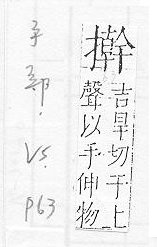 擀
吉旱切干上
聲以手伸物
手部.
V5.
P63